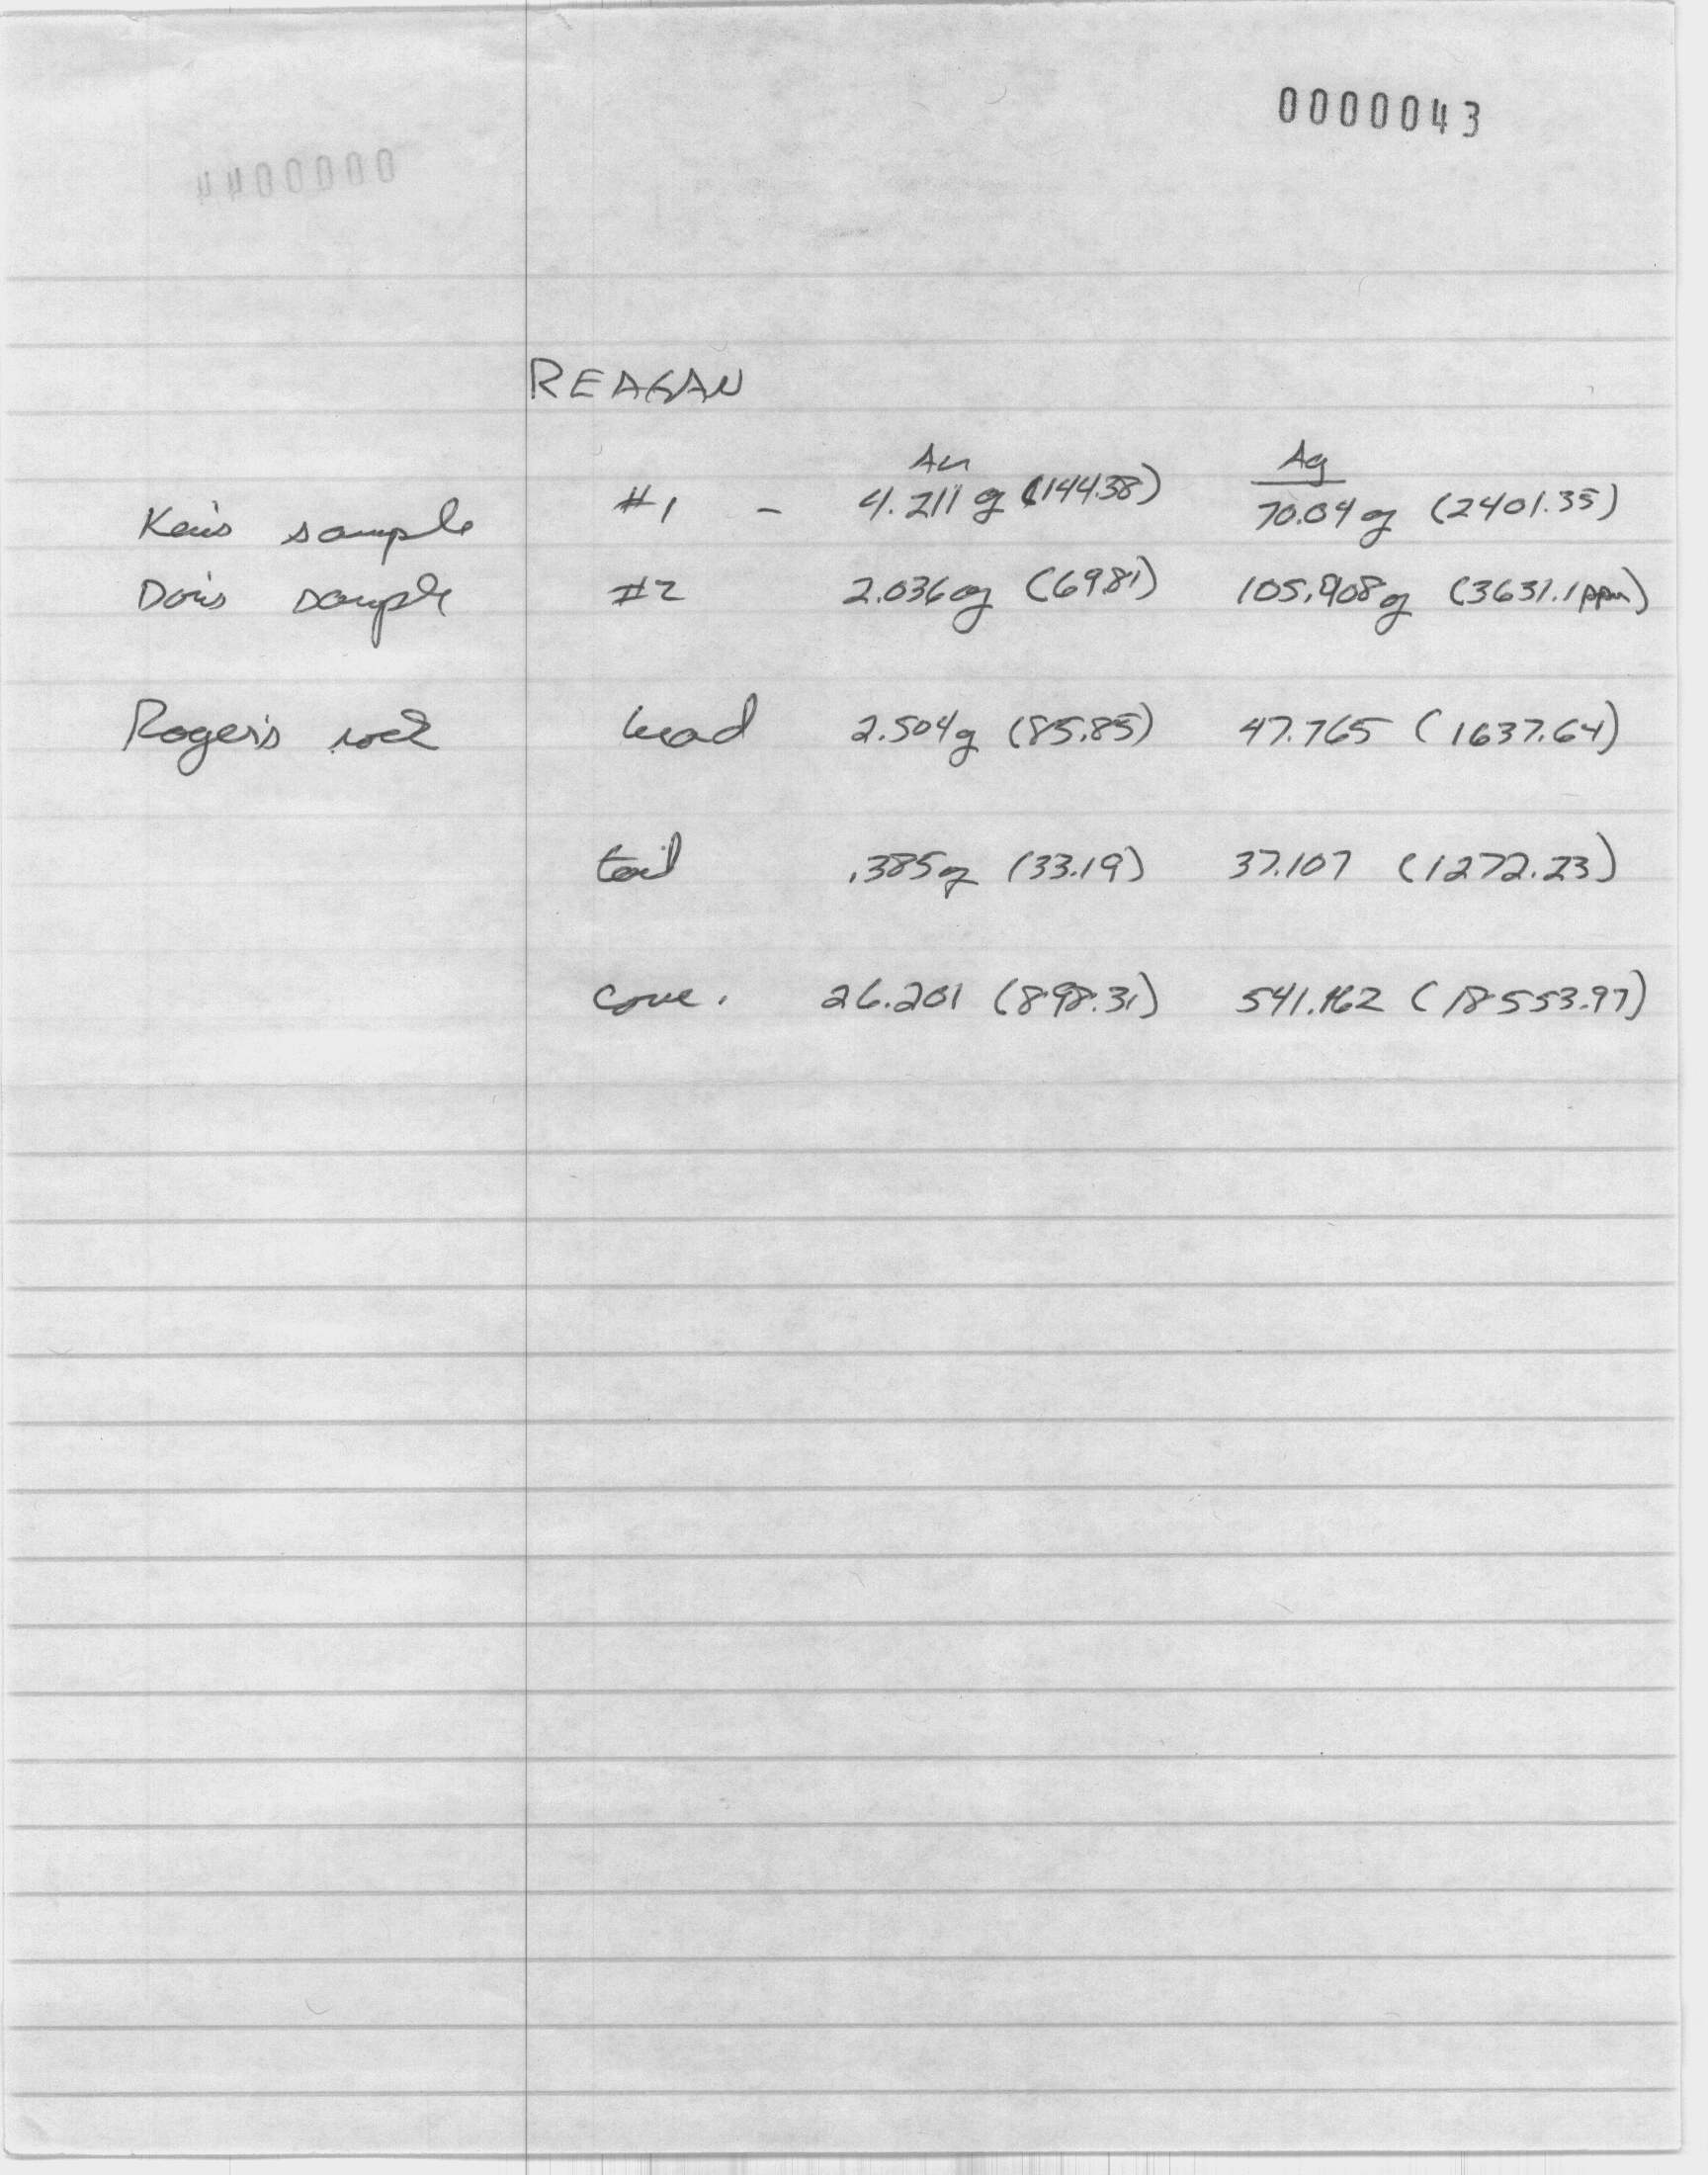 0000043
0000044
REAGAN
Au Ag
Ken's sample #1 - 4.211 g (144.38) 70.04 g (2401.35)
Don's sample #2 2.036 g (69.81) 105.908 g (3631.1 ppm)
Roger's rock head 2.504 g (85.85) 47.765 (1637.64)
tail .385 g (33.19) 37.107 (1272.23)
conc. 26.201 (898.31) 541.162 (18553.97)